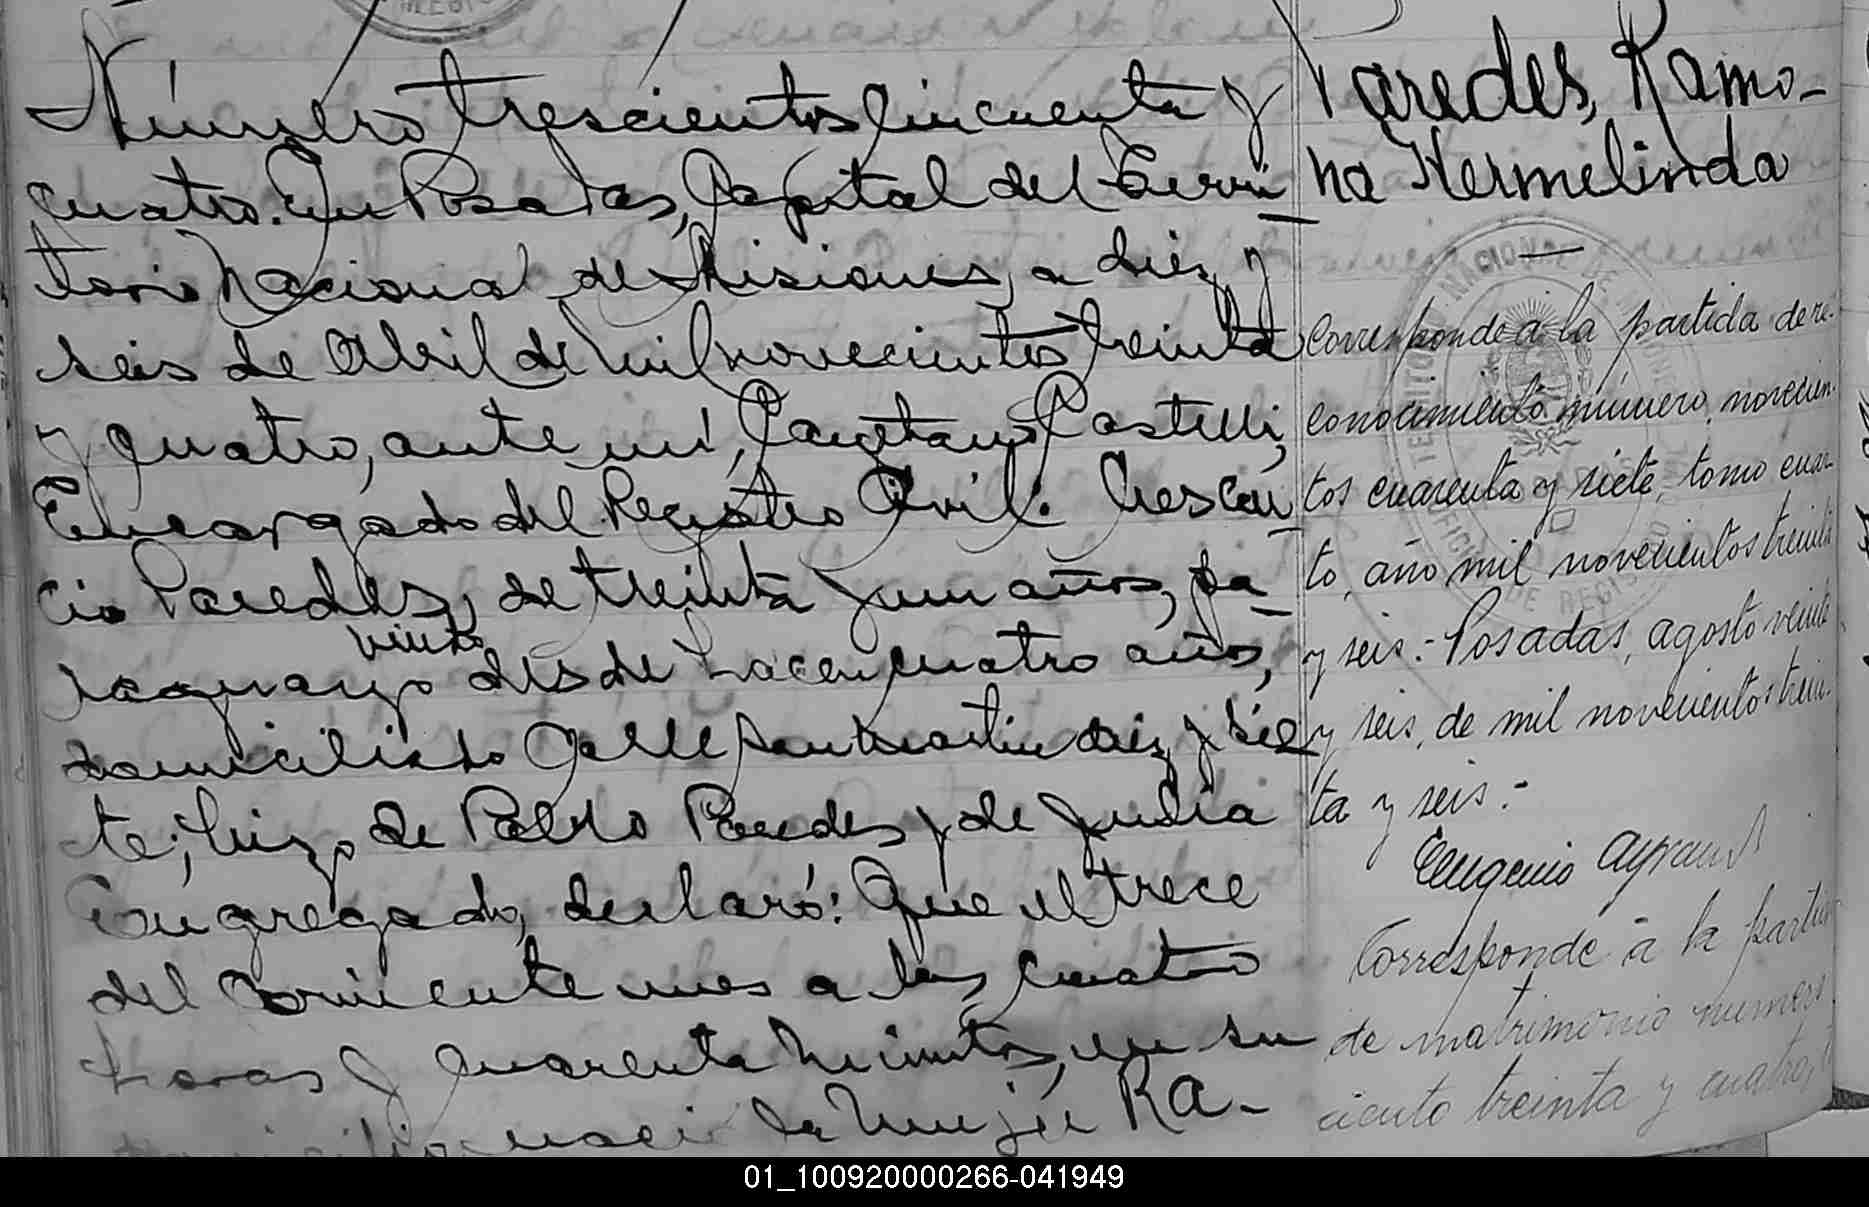 Número trescientos cincuenta y
cuatro. En Posadas, Capital del Terri
torio Nacional de Misiones, a diez y
seis de Abril de mil novecientos treinta
y cuatro, ante mí, Cayetano Castelli,
Encargado del Registro Civil: Crescen
cio Paredes, de treinta y un años, pa
veinte
raguayo desde hacen cuatro años,
domiciliado Calle San Martin diez y sie
te; hijo de Pablo Paredes y de Judia
declaró: Que el trece
del corriente mes a las cuatro
horas y cuarenta minutos, en su
nació la mujer RA-
Paredes, Ramo-
na Hermelinda
Corresponde a la partida de re-
conocimiento número novecien-
tos cuarenta y siete, tomo cuar-
to, año mil novecientos treinta
y seis.- Posadas, agosto veinte
y seis, de mil novecientos trein-
ta y seis.-
Eugenio
Corresponde a la partida
de matrimonio numero
ciento treinta y cuatro,
01_100920000266-041949